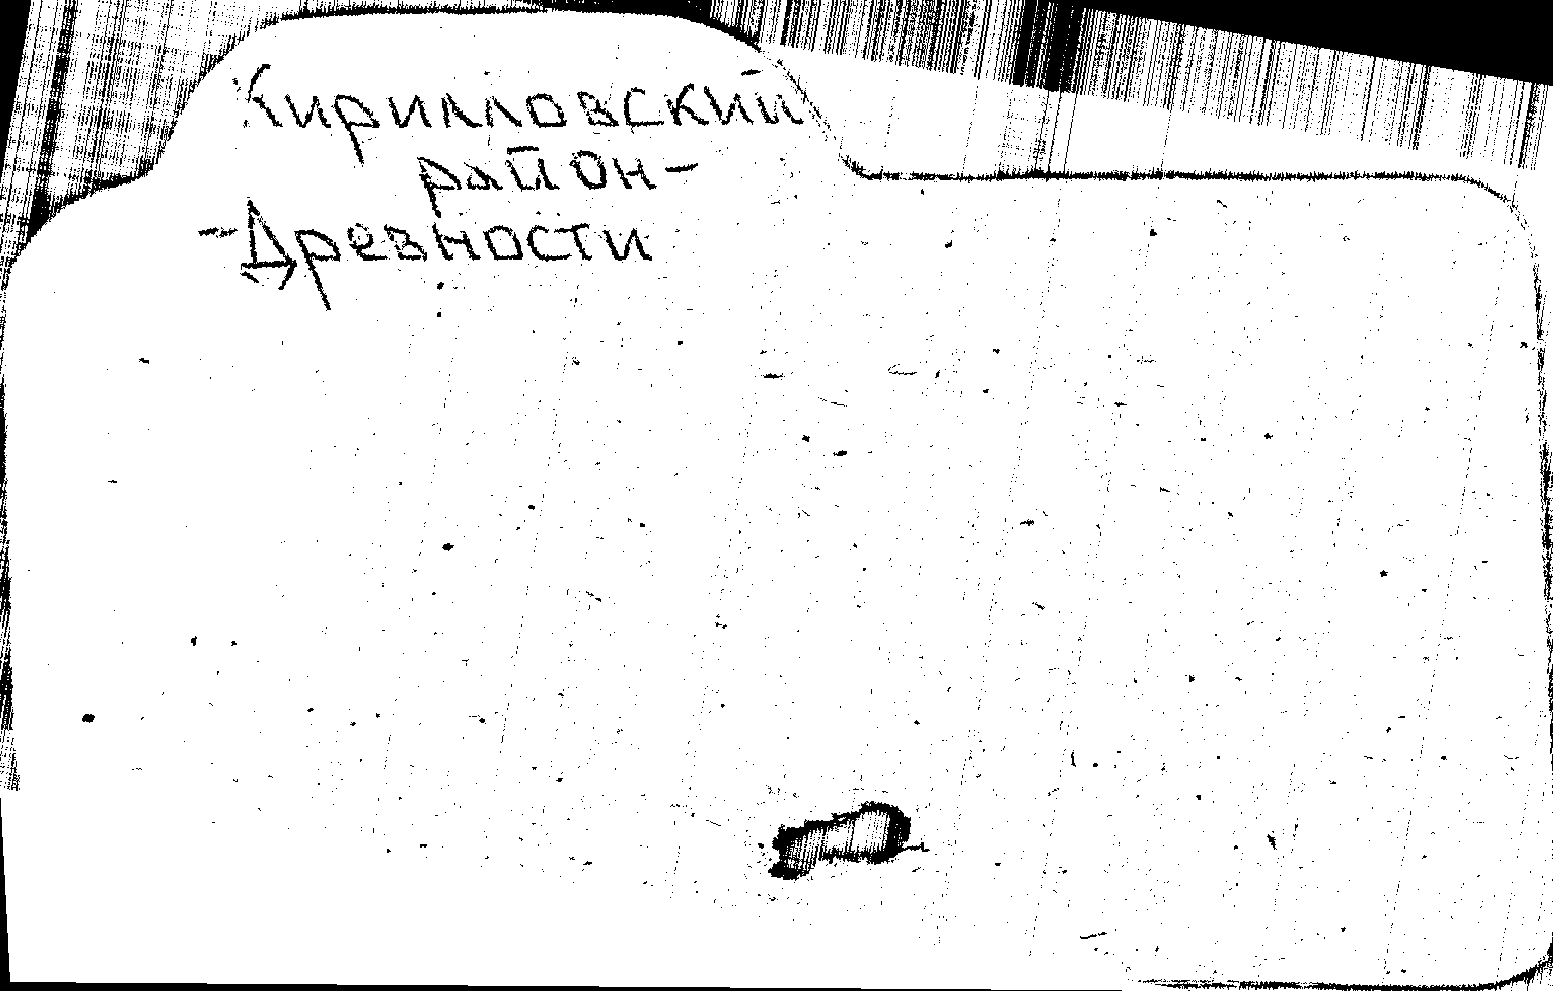 Кирилловский
район-
-Древности